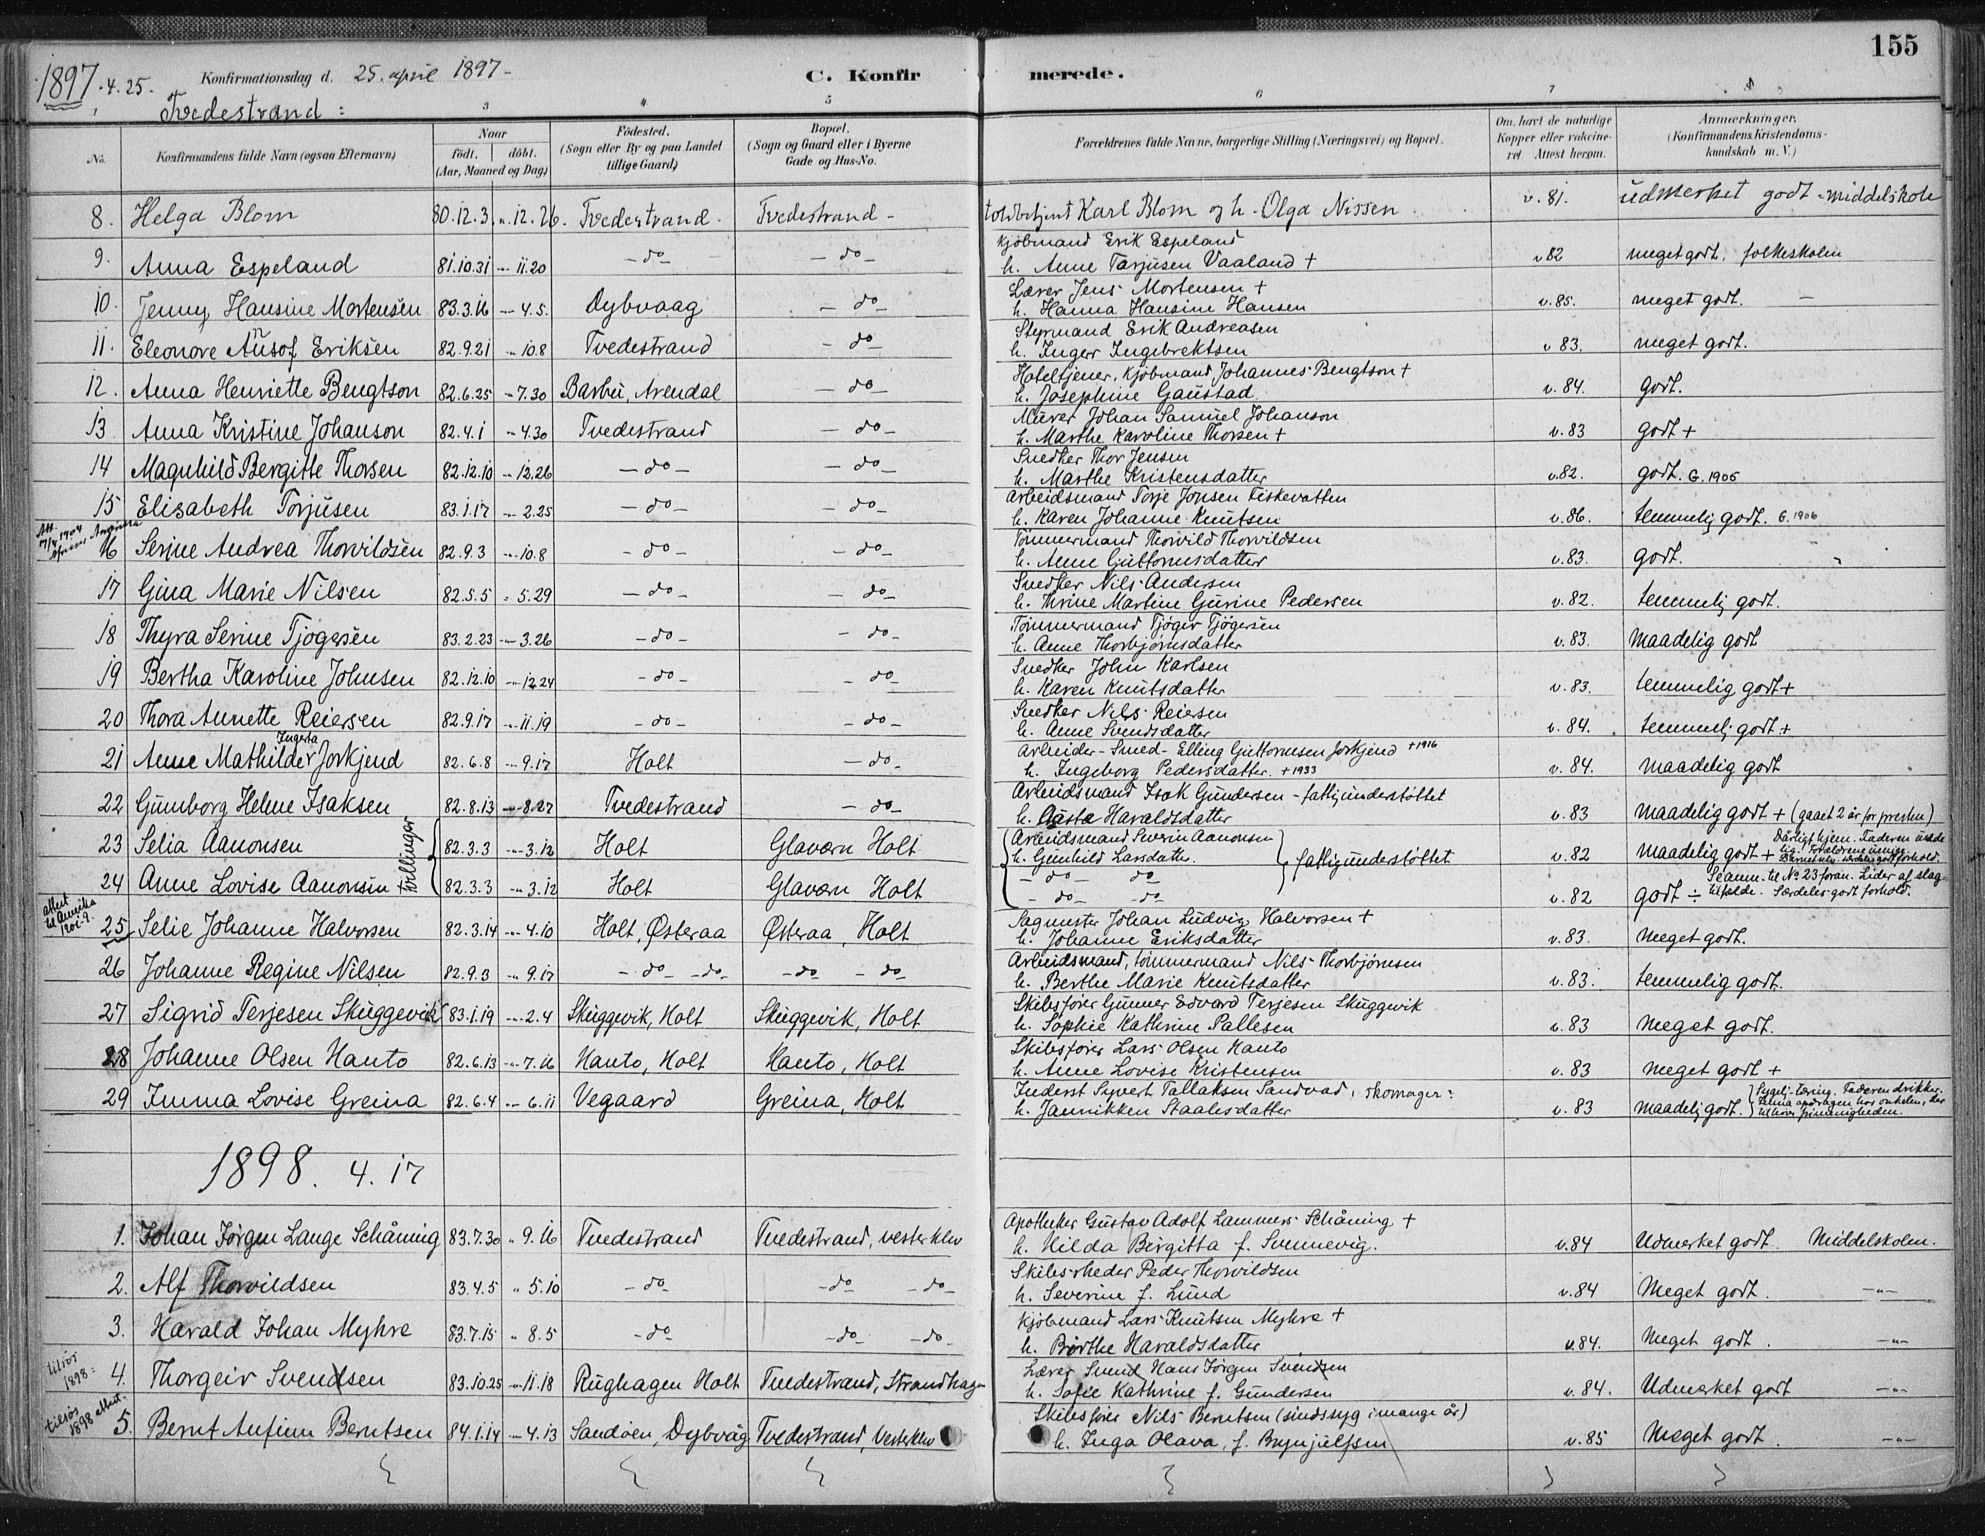 155
1897 . 4. 25. Konfirmationsdag d. 25. april 1897 - C. Konfirmerede.
Tvedestrand :
1 3 4 5 6 7
No. Konfirmandens fulde Navn (ogsaa Efternavn)
Naar født. døbt. (Aar, Maaned og Dag)
Fødested. (Sogn eller By og paa Landet tillige Gaard)
Bopæl. (Sogn og Gaard eller i Byerne Gade og Hus-No.
Forældrenes fulde Navne, borgerlige Stilling (Næringsvei) og Bopæl.
Om havt de naturlige Kopper eller vakcineret. Attest herom.
Anmærkninger. (Konfirmandens Kristendomskundskab m. V.)
8. Helga Blom 80.12.3 - 12.26. Tvedestrand - Tvedestrand - toldbetjent Karl Blom og h. Olga Nissen v. 81. udmerket godt - middelskole
9. Anna Espeland 81.10.31 - 11.20 - do - - do - Kjøbmand Erik Espeland
h. Anne Tarjusen Vaaland + v 82 meget godt. folkeskolen
10. Jenny Hansine Mortensen 83.3.16 - 4.5. Dybvaag - do - Lærer Jens Mortensen +
h. Hanna Hansine Hansen v. 85. meget godt. -
11. Eleonore Ansof Eriksen 82.9.21 - 10.8 Tvedestrand - do - Styrmand Erik Andreasen
h. Inger Ingebrektsen v 83. meget godt.
12. Anna Henriette Bengtson 82.6.25 - 7.30 Barbu, Arendal - do - Hoteltjener, Kjøbmand Johannes Bengtson +
h. Josephine Gaustad v. 84. godt.
13. Anna Kristine Johanson 82.4.1 - 4.30 Tvedestrand - do - Murer Johan Samuel Johanson
h. Marthe Karoline Thorsen + v. 83 godt +
14 Magnhild Bergitte Thorsen 82.12.10 - 12.26 - do - - do - Snedker Thor Jensen
h. Marthe Kristensdatter v. 82. godt. G. 1905
15 Elisabeth Torjusen 83.1.17 - 2.25 - do - - do - Arbeidsmand Torje Jonsen Fiskevatten
h. Karen Johanne Knutsen v. 86. temmelig godt. G. 1906
16 Serine Andrea Thorvildsen 82.9.3 - 10.8 - do - - do - Tømmermand Thorvild Thorvildsen
h. Anne Guttormsdatter v. 83. godt.
17 Gina Marie Nilsen 82.5.5 - 5.29 - do - - do - Snedker Nils Andersen
h. Thrine Martine Gurine Pedersen v. 82. temmelig godt.
18 Thyra Serine Tjøgersen 83.2.23 - 3.26 - do - - do - Tømmermand Tjøger Tjøgersen
h. Anne Thorbjørnsdatter v. 83. maadelig godt
19 Bertha Karoline Johnsen 82.12.10 - 12.24 - do - - do - Snedker John Karlsen
h. Karen Knutsdatter v. 83. temmelig godt +
20 Thora Annette Reiersen 82.9.17 - 11.19 - do - - do - Snedker Nils Reiersen
h. Anne Svendsdatter v. 84. temmelig godt +
Ingerta
21 Anne Mathilde Jorkjend 82.6.8 - 9.17 Holt - do - Arbeider - Smed - Elling Guttormsen Jorkjend + 1916
h. Ingeborg Pedersdatter. + 1933 v. 84. maadelig godt
22 Gunborg Helene Isaksen 82.8.13 - 8.27 Tvedestrand - do - Arbeidsmand Isak Gundersen - fattigunderstøttet
h. Aaste Haraldsdatter v. 83 maadelig godt + (gaaet 2 år for presten)
23 Selia Aanonsen tvillinger 82.3.3 - 3.12 Holt Glaværn Holt Arbeidsmand Severin Aanonsen
h. Gunhild Larsdatter. fattigunderstøttet v. 82 maadelig godt + Dårligt hjem. Faderen
24 Anne Lovise Aanonsen 82.3.3 - 3.12 Holt Glaværn Holt - do - do
- do - - do - v. 82 godt ÷ Se anm. til No 23 foran. Lider af slagtilfælde. Særdeles godt forhold.
25 Selie Johanne Halvorsen 82.3.14 - 4.10 Holt, Østeraa Østeraa, Holt Sagmester Johan Ludvig Halvorsen +
h. Johanne Eriksdatter v. 83. Meget godt.
26 Johanne Regine Nilsen 82.9.3 - 9.17 - do - - do - - do - do - Arbeidsmand, tømmermand Nils Thorbjørnsen
h. Berthe Marie Knutsdatter v. 83. temmelig godt.
27 Sigrid Terjesen Skuggevik 83.1.19 - 2.4 Skuggevik, Holt Skuggevik, Holt Skibsfører Gunner Edvard Terjesen Skuggevik
h. Sophie Kathrine Pallesen v. 83 Meget godt.
28 Johanne Olsen Hanto 82.6.13 - 7.16 Hanto, Holt Hanto, Holt Skibsfører Lars Olsen Hanto
h. Anne Lovise Kristensen v. 83 Meget godt +
29 Emma Lovise Greina 82.6.4 - 6.11 Vegaard Greina, Holt Inderst Syvert Tallaksen Sandvad, skomager:
h. Jannikken Staalesdatter v. 83 maadelig godt. Faderen drikker.
1898. 4. 17
1. Johan Jørgen Lange Schåning 83.7.30 " 9.16 Tvedestrand Tvedestrand, vesterklev Apotheker Gustav Adolf Lammers Schåning +
h. Hilda Birgitta f. Svennevig. v. 84 Udmerket godt Middelskolen.
2. Alf Thorvildsen 83.4.5 " 5.10 - do - - do - do - Skibsrheder Peder Thorvildsen
h. Severine f. Lund v. 84 Meget godt. - " -
3. Harald Johan Myhre 83.7.15 " 8.5 - do - - do - - do - Kjøbmand Lars Knutsen Myhre +
h. Børthe Haraldsdatter v. 84. Meget godt. - " -
tilsøs 1898:
4. Thorgeir Svendsen 83.10.25 - 11.18 Rughagen Holt Tvedestrand, Strandhagen Lærer Svend Hans Jørgen Svendsen
h. Sofie Kathrine f. Gundersen v. 84. Udmerket godt - " -
tilsøs 1898 attest.
5. Bernt Anfinn Berntsen 84.1.14 - 4.13 Sandøen, Dybvåg Tvedestrand, Vesterklev Skibsfører Nils Berntsen (sindssyg i mange år)
h. Inga Olava, f. Brynjulfsen v. 85 Meget godt. - " -